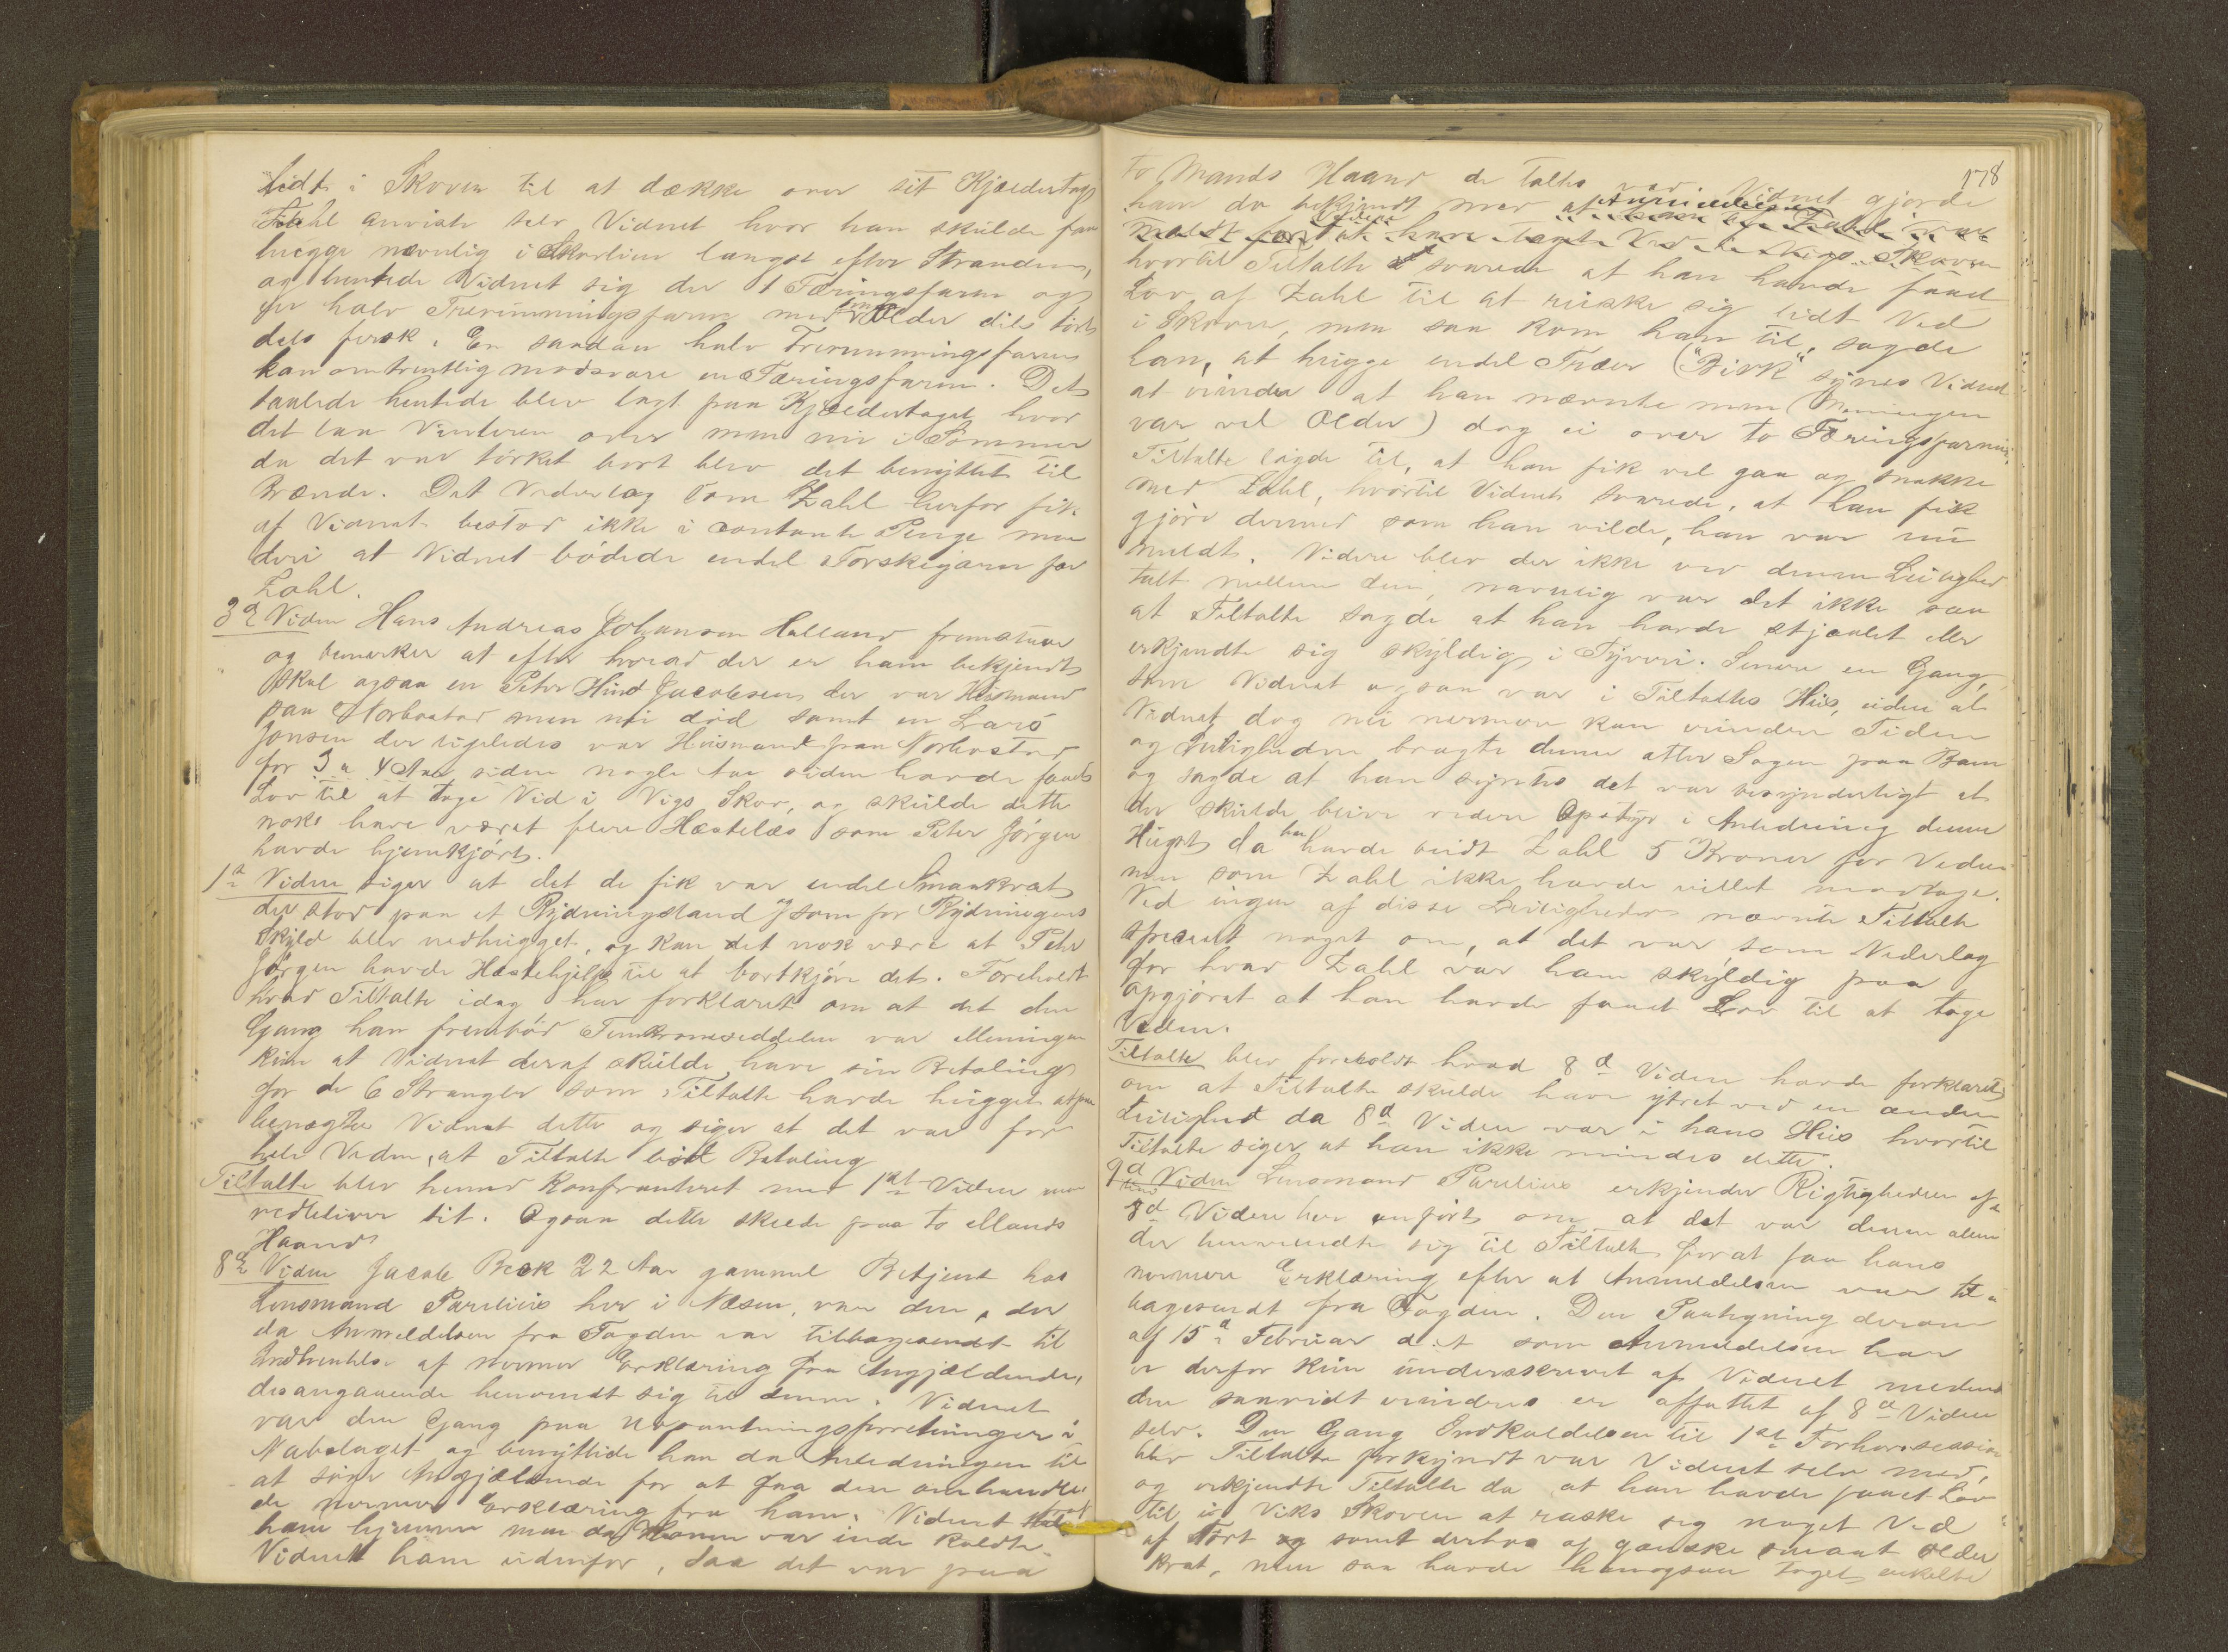 lidt i Skoven til at dække over sit Kjældertag
Zahl anviste selv Vidnet hvor han skulde faa
hugge navnlig i Skorlien langst efter Stranden,
og hentede Vidnet sig der 1 Færingsfarm og
en halv Trerumningsfarm med smaa Older dels tørt
dels fersk. En saadan halv Trerumningsfarm
kan omtrentlig modsvare en Færingsfarm. Det
saaledes hentede blev lagt paa Kjældertaget hvor
det laa Vinteren over men nu i Sommer
da det var tørket bort blev det benyttet til
Brænde. Det Vederlag som Zahl herfor fik
af Vidnet bestod ikke i contante Penge men
deri at Vidnet bødede endel Torskegarn for
Zahl.
3d Vidne Hans Andreas Johansen Halland fremstaar
og bemerker at efter hvad der er ham bekjendt
skal ogsaa en Peter Hind Jacobsen der var Husmand
paa Norbostad men nu død samt en Lars
Jonsen der ligeledes var Husmand paa Norbostad
for 3 a 4 Aar siden nogle Aar siden havde faaet
Lov til at tage Ved i Vigs Skov, og skulde dette
nok have været flere Hæstelæs som Peter Jørgen
havde hjemkjørt.
1ste Vidne siger at det de fik var endel Smaakrat
der stod paa et Rydningsland og som for Rydningens
Skyld blev nedhugget, og kan det nok være at Peter
Jørgen havde Hæstehjelp til at bortkjøre det. Foreholdt
hvad Tiltalte idag har forklaret om at det den
Gang han frembød Femkroneseddelen var Meningen
kun at Vidnet deraf skulde have sin Betaling
for de 6 Stranger som Tiltalte havde hugget
benægter Vidnet dette og siger at det var for
hele Veden, at Tiltalte bød Betaling
Tiltalte blev herved konfronteret med 1ste Vidne men
vedbliver sit. Ogsaa dette skede paa to Mands
Haand
8de Vidne Jacob Beck 22 Aar gammel Betjent hos
Lensmand Parelius her i Næsne, var den, der
da Anmeldelsen fra Fogden var tilbagesendt til
Indhentelse af nermere Erklæring fra Angjældende,
desangaaende henvendt sig til denne. Vidnet
var den Gang paa Udpantningsforretninger i
Nabolaget og benyttede han da Anledningen til
at søge Angjældende for at faa den omhandle-
de nermere Erklæring fra ham. Vidnet traf
ham hjemme men da Konen var inde kaldte
Vidnet ham udenfor, saa det var paa
178
to Mands Haand de talte ved. Vidnet gjorde
ham da bekjendt med at Anmeldelsen
hvortil Tiltalte svarede at han havde faaet
Lov af Zahl til at ruske sig lidt Ved
i Skoven, men saa kom han til, sagde
han, at hugge endel Træer ("Birk" synes Vidnet
at mindes at han nævnte men Meningen
var vel Older) dog ei over to Færingsfarme,
Tiltalte lagde til, at han fik vel gaa og snakke
med Zahl, hvortil Vidnet svarede, at han fik
gjøre dermed som han vilde, han var nu
meldt. Videre blev der ikke ved denne Leilighed
talt mellem dem, navnlig var det ikke saa
at Tiltalte sagde at han havde stjaalet eller
erkjendte sig skyldig i Tyveri. Senere en Gang,
som Vidnet ogsaa var i Tiltaltes Hus, uden at
Vidnet dog nu nermere kan erindre Tiden
og Leiligheden bragte denne atter Sagen paa Bane
og sagde at han syntes det var besynderligt at
der skulde blive videre Opstyr i Anledning denne
Hugst da han havde budt Zahl 5 Kroner for Veden
men som Zahl ikke havde villet modtage.
Ved ingen af disse Leiligheder nævnte Tiltalte
specielt noget om, at det var som Vederlag
for hvad Zahl var ham skyldig paa
Opgjøret at han havde faaet Lov til at tage
Veden.
Tiltalte blev foreholdt hvad 8de Vidne havde forklaret
om at Tiltalte skulde have ytret ved en anden
Leilighed da 8de Vidne var i hans Hus hvortil
Tiltalte siger at han ikke mindes dette.
9de Vidne Lensmand Parelius erkjender Rigtigheden af
8de Vidne her anført om at det var denne alene
der henvendte sig til Tiltalte for at faa hans
nermere Erklæring efter at Anmeldelsen var til-
bagesendt fra Fogden. Den Paategning derom
af 15de Februar d. A. som Anmeldelsen har
er derfor kun underskrevet af Vidnet medens
den saavidt erindres er affattet af 8de Vidne
selv. Den Gang Indkaldelsen til 1ste Forhørssession
blev Tiltalte forkyndt var Vidnet selv med,
og erkjendte Tiltalte da at han havde faaet Lov
til i Viks Skoven at raske sig noget Ved
af tørt og samt derhos af ganske smaat Older
Krat, men saa havde han ogsaa taget enkelte